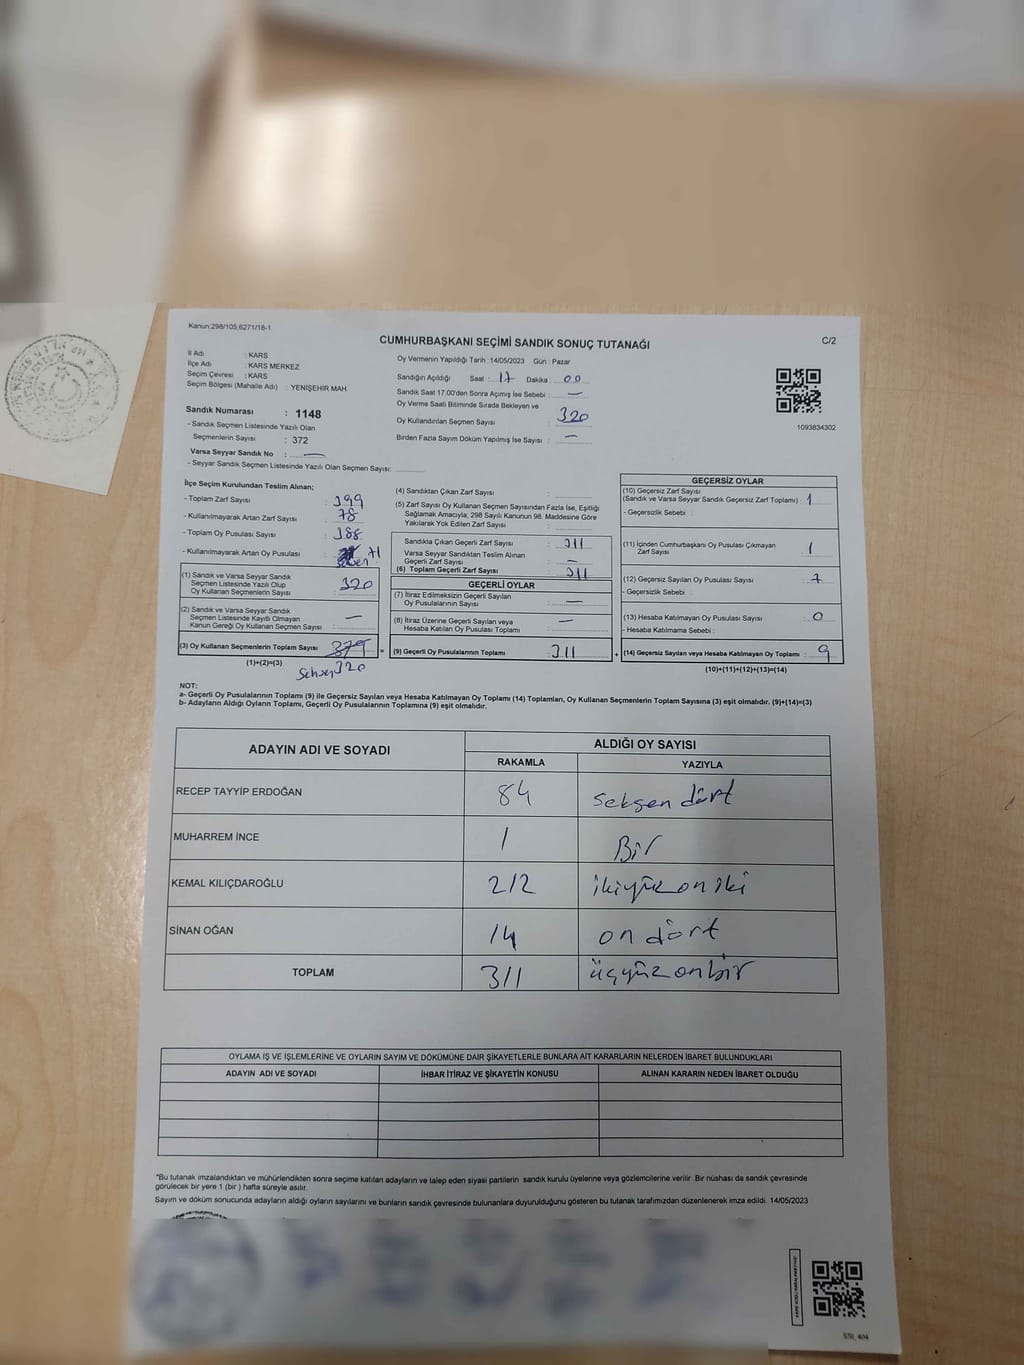 Kanun:298/105;6271/18-1
CUMHURBAŞKANI SEÇİMİ SANDIK SONUÇ TUTANAĞI
C/2
İl Adı : KARS
İlçe Adı : KARS MERKEZ
Seçim Çevresi : KARS
Seçim Bölgesi (Mahalle Adı) : YENİŞEHİR MAH.
Sandık Numarası : 1148
- Sandık Seçmen Listesinde Yazılı Olan
Seçmenlerin Sayısı : 372
Varsa Seyyar Sandık No : —
- Seyyar Sandık Seçmen Listesinde Yazılı Olan Seçmen Sayısı:
Oy Vermenin Yapıldığı Tarih : 14/05/2023 Gün : Pazar
Sandığın Açıldığı Saat : 17 Dakika : 00
Sandık Saat 17:00'den Sonra Açımış İse Sebebi : —
Oy Verme Saati Bitiminde Sırada Bekleyen ve
Oy Kullandırılan Seçmen Sayısı : 320
Birden Fazla Sayım Döküm Yapılmış İse Sayısı : —
1093834302
İlçe Seçim Kurulundan Teslim Alınan;
- Toplam Zarf Sayısı : 399
- Kullanılmayarak Artan Zarf Sayısı : 78
- Toplam Oy Pusulası Sayısı : 388
- Kullanılmayarak Artan Oy Pusulası : 71
(1) Sandık ve Varsa Seyyar Sandık
Seçmen Listesinde Yazılı Olup
Oy Kullanan Seçmenlerin Sayısı : 320
(2) Sandık ve Varsa Seyyar Sandık
Seçmen Listesinde Kayıtlı Olmayan
Kanun Gereği Oy Kullanan Seçmen Sayısı : —
(3) Oy Kullanan Seçmenlerin Toplam Sayısı : 379
(1)+(2)=(3)
320
(4) Sandıktan Çıkan Zarf Sayısı :
(5) Zarf Sayısı Oy Kullanan Seçmen Sayısından Fazla İse, Eşitliği
Sağlamak Amacıyla; 298 Sayılı Kanunun 98. Maddesine Göre
Yakılarak Yok Edilen Zarf Sayısı :
Sandıkta Çıkan Geçerli Zarf Sayısı : 311
Varsa Seyyar Sandıktan Teslim Alınan
Geçerli Zarf Sayısı : —
(6) Toplam Geçerli Zarf Sayısı : 311
GEÇERLİ OYLAR
(7) İtiraz Edilmeksizin Geçerli Sayılan
Oy Pusulalarının Sayısı : —
(8) İtiraz Üzerine Geçerli Sayılan veya
Hesaba Katılan Oy Pusulası Toplamı : —
= (9) Geçerli Oy Pusulalarının Toplamı : 311
GEÇERSİZ OYLAR
(10) Geçersiz Zarf Sayısı
(Sandık ve Varsa Seyyar Sandık Geçersiz Zarf Toplamı) : 1
- Geçersizlik Sebebi :
(11) İçinden Cumhurbaşkanı Oy Pusulası Çıkmayan
Zarf Sayısı : 1
(12) Geçersiz Sayılan Oy Pusulası Sayısı : 7
- Geçersizlik Sebebi :
(13) Hesaba Katılmayan Oy Pusulası Sayısı : 0
- Hesaba Katılmama Sebebi :
+ (14) Geçersiz Sayılan veya Hesaba Katılmayan Oy Toplamı : 9
(10)+(11)+(12)+(13)=(14)
NOT:
a- Geçerli Oy Pusulalarının Toplamı (9) ile Geçersiz Sayılan veya Hesaba Katılmayan Oy Toplamı (14) Toplamları, Oy Kullanan Seçmenlerin Toplam Sayısına (3) eşit olmalıdır. (9)+(14)=(3)
b- Adayların Aldığı Oyların Toplamı, Geçerli Oy Pusulalarının Toplamına (9) eşit olmalıdır.
ADAYIN ADI VE SOYADI
ALDIĞI OY SAYISI
RAKAMLA YAZIYLA
RECEP TAYYİP ERDOĞAN 84 seksen dört
MUHARREM İNCE 1 Bir
KEMAL KILIÇDAROĞLU 212 ikiyüz on iki
SİNAN OĞAN 14 on dört
TOPLAM 311 üçyüz on bir
OYLAMA İŞ VE İŞLEMLERİNE VE OYLARIN SAYIM VE DÖKÜMÜNE DAİR ŞİKAYETLERLE BUNLARA AİT KARARLARIN NELERDEN İBARET BULUNDUKLARI
ADAYIN ADI VE SOYADI İHBAR İTİRAZ VE ŞİKAYETİN KONUSU ALINAN KARARIN NEDEN İBARET OLDUĞU
"Bu tutanak imzalandıktan ve mühürlendikten sonra seçime katılan adayların ve talep eden siyasi partilerin sandık kurulu üyelerine veya gözlemcilerine verilir. Bir nüshası da sandık çevresinde
görülecek bir yere 1 (bir ) hafta süreyle asılır.
Sayım ve döküm sonucunda adayların aldığı oyların sayılarını ve bunların sandık çevresinde bulunanlara duyurulduğunu gösteren bu tutanak tarafımızdan düzenlenerek imza edildi. 14/05/2023